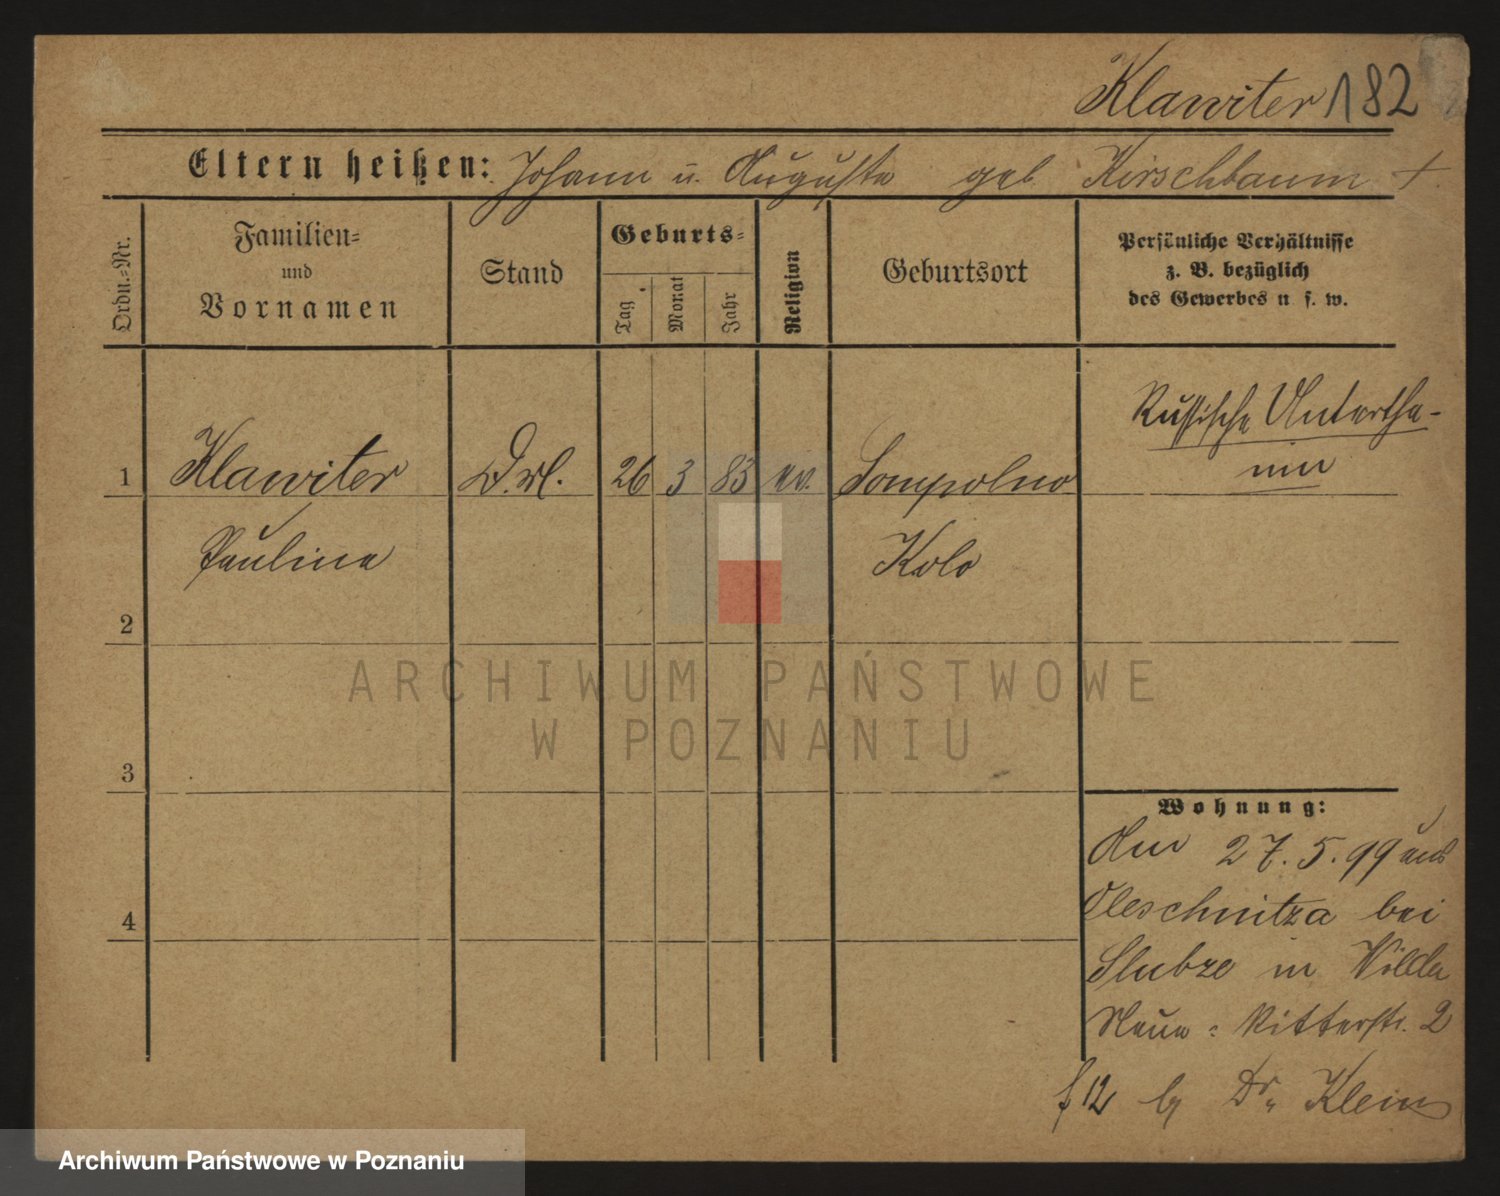 Klawiter 182
Eltern heißen: Johann u. Auguste geb Kirschbaum +
Ordn.=Nr.
Familien=
und
Vornamen
Stand
Geburts=
Tag
Monat
Jahr
Religion
Geburtsort
Persönliche Verhältnisse
z. B. bezüglich
des Gewerbes u s. w.
Russische Untertha-
nin
1 Klawiter 26 3 83 ev. Sompolno
Pauline Kolo
2
ARCHIWUM PAŃSTWOWE
W POZNANIU
3
Wohnung:
Am 27.5.99 aus
Oleschnitza bei
Slubze in Wilda
4
Neue = Ritterstr. 2
Dr. Klein
Archiwum Państwowe w Poznaniu